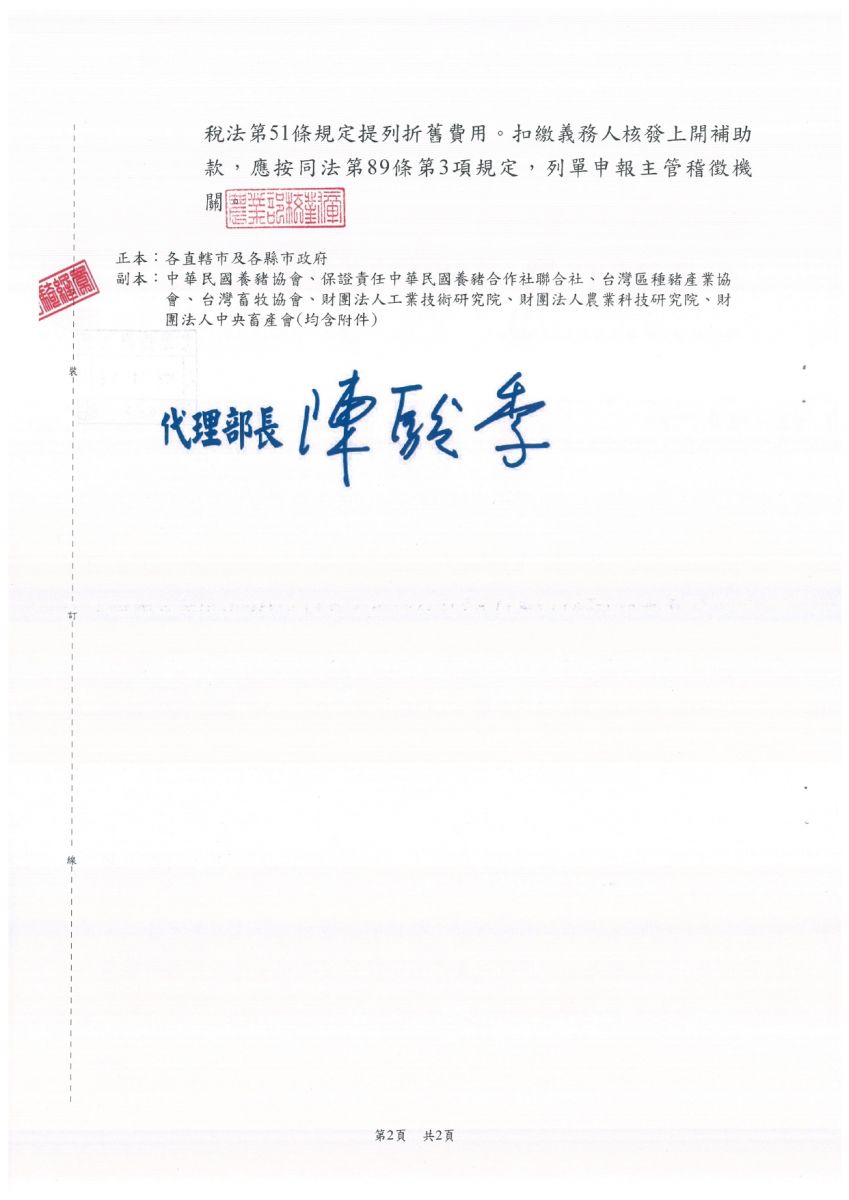 稅法第51條規定提列折舊費用。扣繳義務人核發上開補助
款，應按同法第89條第3項規定，列單申報主管稽徵機
關
農業部校對章
正本：各直轄市及各縣市政府
副本：中華民國養豬協會、保證責任中華民國養豬合作社聯合社、台灣區種豬產業協
會、台灣畜牧協會、財團法人工業技術研究院、財團法人農業科技研究院、財
團法人中央畜產會(均含附件)
裝
代理部長 陳駿季
訂
線
第2頁 共2頁